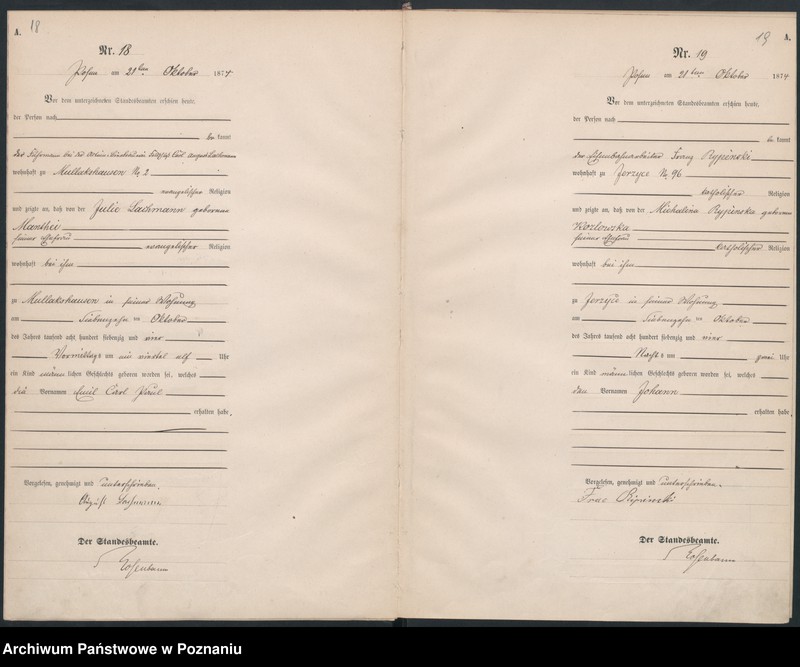 A. 18
Nr. 18
Posen am 21ten Oktober 1874
Vor dem unterzeichneten Standesbeamten erschien heute,
der Person nach
be kannt
der Fuhrmann bei der Carl August Lachmann
wohnhaft zu Mullakshausen No 2
evangelischer Religion
und zeigte an, daß von der Julie Lachmann geborene
Manthei
seiner Ehefrau
evangelischer Religion
wohnhaft bei ihm
zu Mullakshausen in seiner Wohnung
am Siebenzehn ten Oktober
des Jahres tausend acht hundert siebenzig und vier
Vormittags um ein viertel elf Uhr
ein Kind männlichen Geschlechts geboren worden sei, welches
die Vornamen Emil Carl Paul
erhalten habe.
Vorgelesen, genehmigt und unterschrieben.
August Lachmann
Der Standesbeamte.
19 A.
Nr. 19
Posen am 21ten Oktober 1874
Vor dem unterzeichneten Standesbeamten erschien heute,
der Person nach
be kannt
der Eisenbahnarbeiter Franz Rypinski
wohnhaft zu Jerzyce No 96
katholischer Religion
und zeigte an, daß von der Michalina Rypinska geborene
Kozlowska
seiner Ehefrau
katholischer Religion
wohnhaft bei ihm
zu Jerzyce in seiner Wohnung
am Siebenzehn ten Oktober
des Jahres tausend acht hundert siebenzig und vier
Nachts um zwei Uhr
ein Kind männlichen Geschlechts geboren worden sei, welches
den Vornamen Johann
erhalten habe.
Vorgelesen, genehmigt und unterschrieben.
Franc Ripinski
Der Standesbeamte.
Archiwum Państwowe w Poznaniu